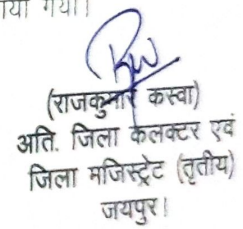 गया।
(राजकुमार कस्वा)
अति. जिला कलक्टर एवं
जिला मजिस्ट्रेट (तृतीय)
जयपुर।